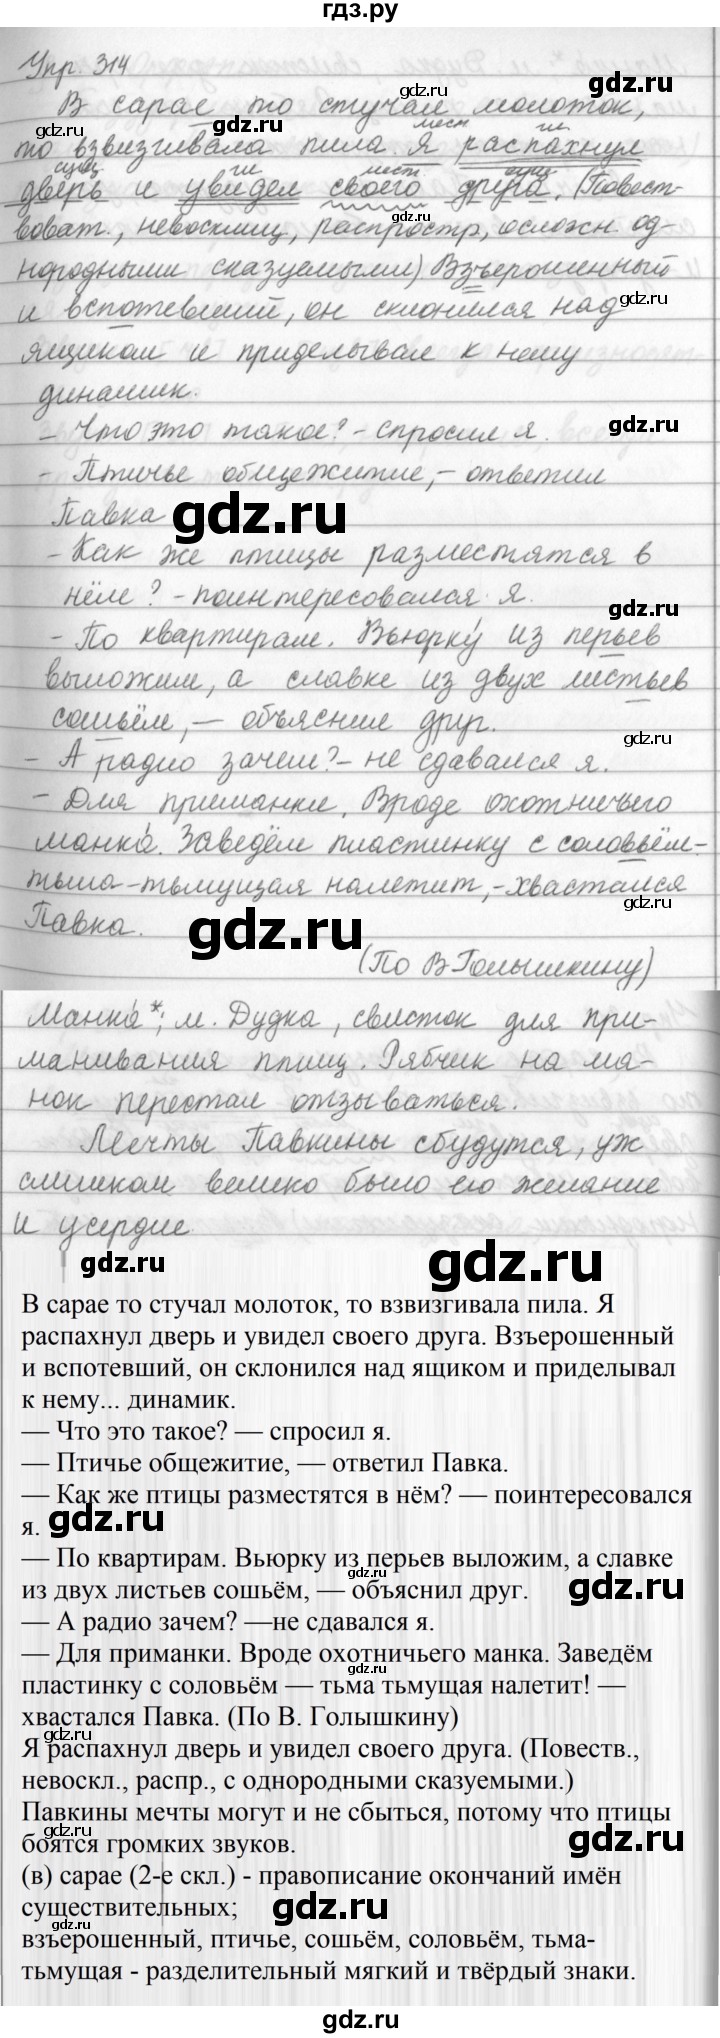 гдз.ру
Упр. 314
В сарае то стучал молоток,
то взвизгивала пила. Я распахнул
мест гл.
дверь и увидел своего друга. (Повест-
сущ. гл. мест. сущ.
воват., невосклиц, распростр, осложн од-
нородными сказуемыми) Взъерошенный
и вспотевший, он склонился над
ящиком и приделывал к нему
динамик.
- Что это такое? - спросил я.
- Птичье общежитие, - ответил
Павка
- Как же птицы разместятся в
нём? - поинтересовался я.
- По квартирам. Вьюрку́ из перьев
выложим, а славке из двух листьев
сошьём, - объяснил друг.
- А радио зачем? - не сдавался я.
- Для приманки. Вроде охотничьего
манка́. Заведём пластинку с соловьём-
тьма-тьмущая налетит, - хвастался
Павка.
(По В Голышкину)
Манка́*; м. Дудка, свисток для при-
манивания птиц. Рябчик на ма-
нок перестал отзываться.
Мечты Павкины сбудутся, уж
слишком велико было его желание
и усердие.
В сарае то стучал молоток, то взвизгивала пила. Я
распахнул дверь и увидел своего друга. Взъерошенный
и вспотевший, он склонился над ящиком и приделывал
к нему... динамик.
— Что это такое? — спросил я.
— Птичье общежитие, — ответил Павка.
— Как же птицы разместятся в нём? — поинтересовался
я.
— По квартирам. Вьюрку из перьев выложим, а славке
из двух листьев сошьём, — объяснил друг.
— А радио зачем? —не сдавался я.
— Для приманки. Вроде охотничьего манка. Заведём
пластинку с соловьём — тьма тьмущая налетит! —
хвастался Павка. (По В. Голышкину)
Я распахнул дверь и увидел своего друга. (Повеств.,
невоскл., распр., с однородными сказуемыми.)
Павкины мечты могут и не сбыться, потому что птицы
боятся громких звуков.
(в) сарае (2-е скл.) - правописание окончаний имён
существительных;
взъерошенный, птичье, сошьём, соловьём, тьма-
тьмущая - разделительный мягкий и твёрдый знаки.
gdz.ru